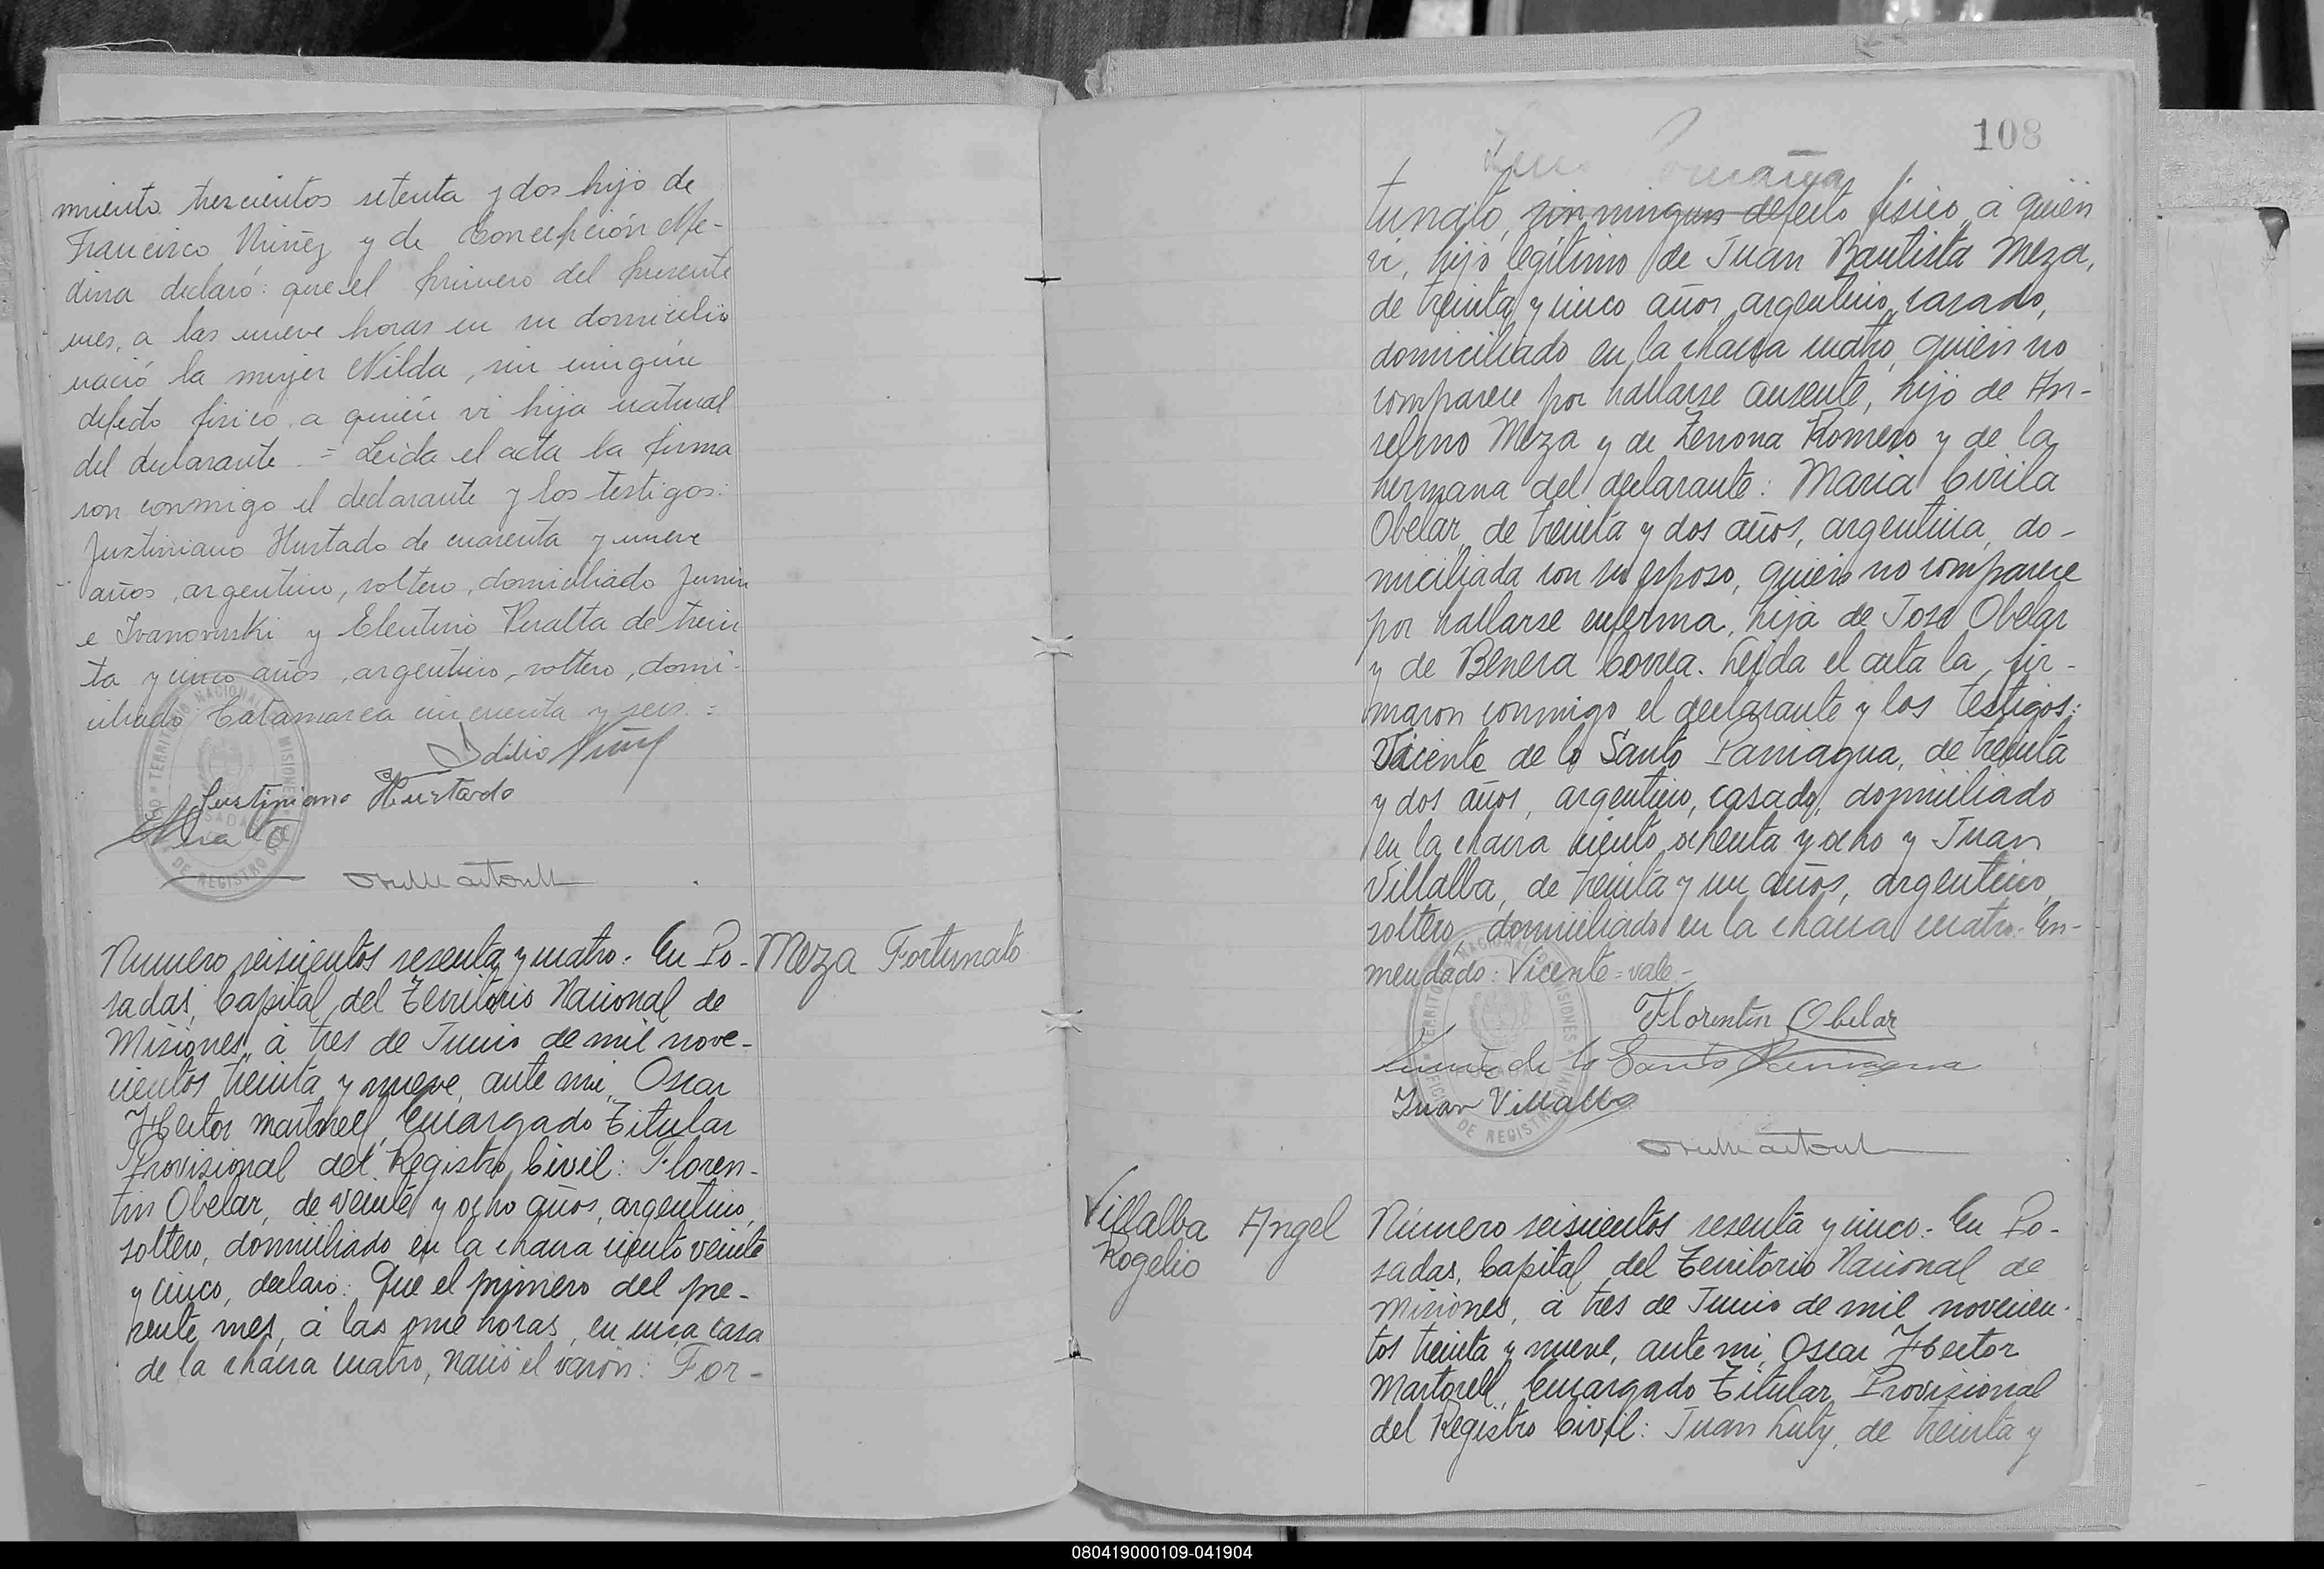 miento trescientos setenta y dos hijo de
Francisco Nuñez y de Concepción Me-
dina declaró: que el primero del presente
mes, a las nueve horas en su domicilio
nació la mujer Nilda, sin ningún
defecto físico, a quién vi hija natural
del declarante. = Leida el acta la firma
ron conmigo el declarante y los testigos:
Justiniano Hurtado de cuarenta y nueve
años, argentino, soltero, domiciliado Junin
e Ivanowski y Eleuterio Peralta de trein
ta y cinco años, argentino, soltero, domi-
ciliado Catamarca cincuenta y seis. =
Idilio Nuñez
Justiniano Hurtado
Numero seiscientos sesenta y cuatro. En Po-
sadas, Capital del Territorio Nacional de
Misiones, á tres de Junio de mil nove-
cientos treinta y nueve, ante mi, Oscar
Hector Martorell, Encargado Titular
Provisional del Registro Civil: Floren-
tin Obelar, de veinte y ocho años, argentino,
soltero, domiciliado en la chacra ciento veinte
y cinco, declaró: Que el primero del pre-
sente mes, á las once horas, en una casa
de la chacra cuatro, nació el varón: For-
Meza Fortunato
108
tunato, sin ningun defecto físico, á quién
vi, hijo legítimo de Juan Bautista Meza,
de treinta y cinco años, argentino, casado,
domiciliado en la chacra cuatro, quién no
comparece por hallarse ausente, hijo de An-
selmo Meza y de Zenona Romero y de la
hermana del declarante: Maria Cirila
Obelar, de treinta y dos años, argentina, do-
miciliada con su esposo, quién no comparece
por hallarse enferma, hija de José Obelar
y de Benera Correa. Leida el acta la fir-
maron conmigo el declarante y los testigos:
Vicente de lo Santo Paniagua, de treinta
y dos años, argentino, casado, domiciliado
en la chacra ciento ochenta y ocho y Juan
Villalba, de treinta y un años, argentino,
soltero, domiciliado en la chacra cuatro. En-
mendado: Vicente = vale.-
Florentin Obelar
de lo Santo Paniagua
Juan Villalba
Villalba Angel
Rogelio
Número seiscientos sesenta y cinco. En Po-
sadas, Capital del Territorio Nacional de
Misiones, á tres de Junio de mil novecien-
tos treinta y nueve, ante mi, Oscar Hector
Martorell, Encargado Titular Provisional
del Registro Civil: Juan Luty, de treinta y
080419000109-041904